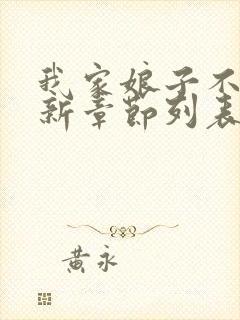 我家娘子不
新章节列表
黄永